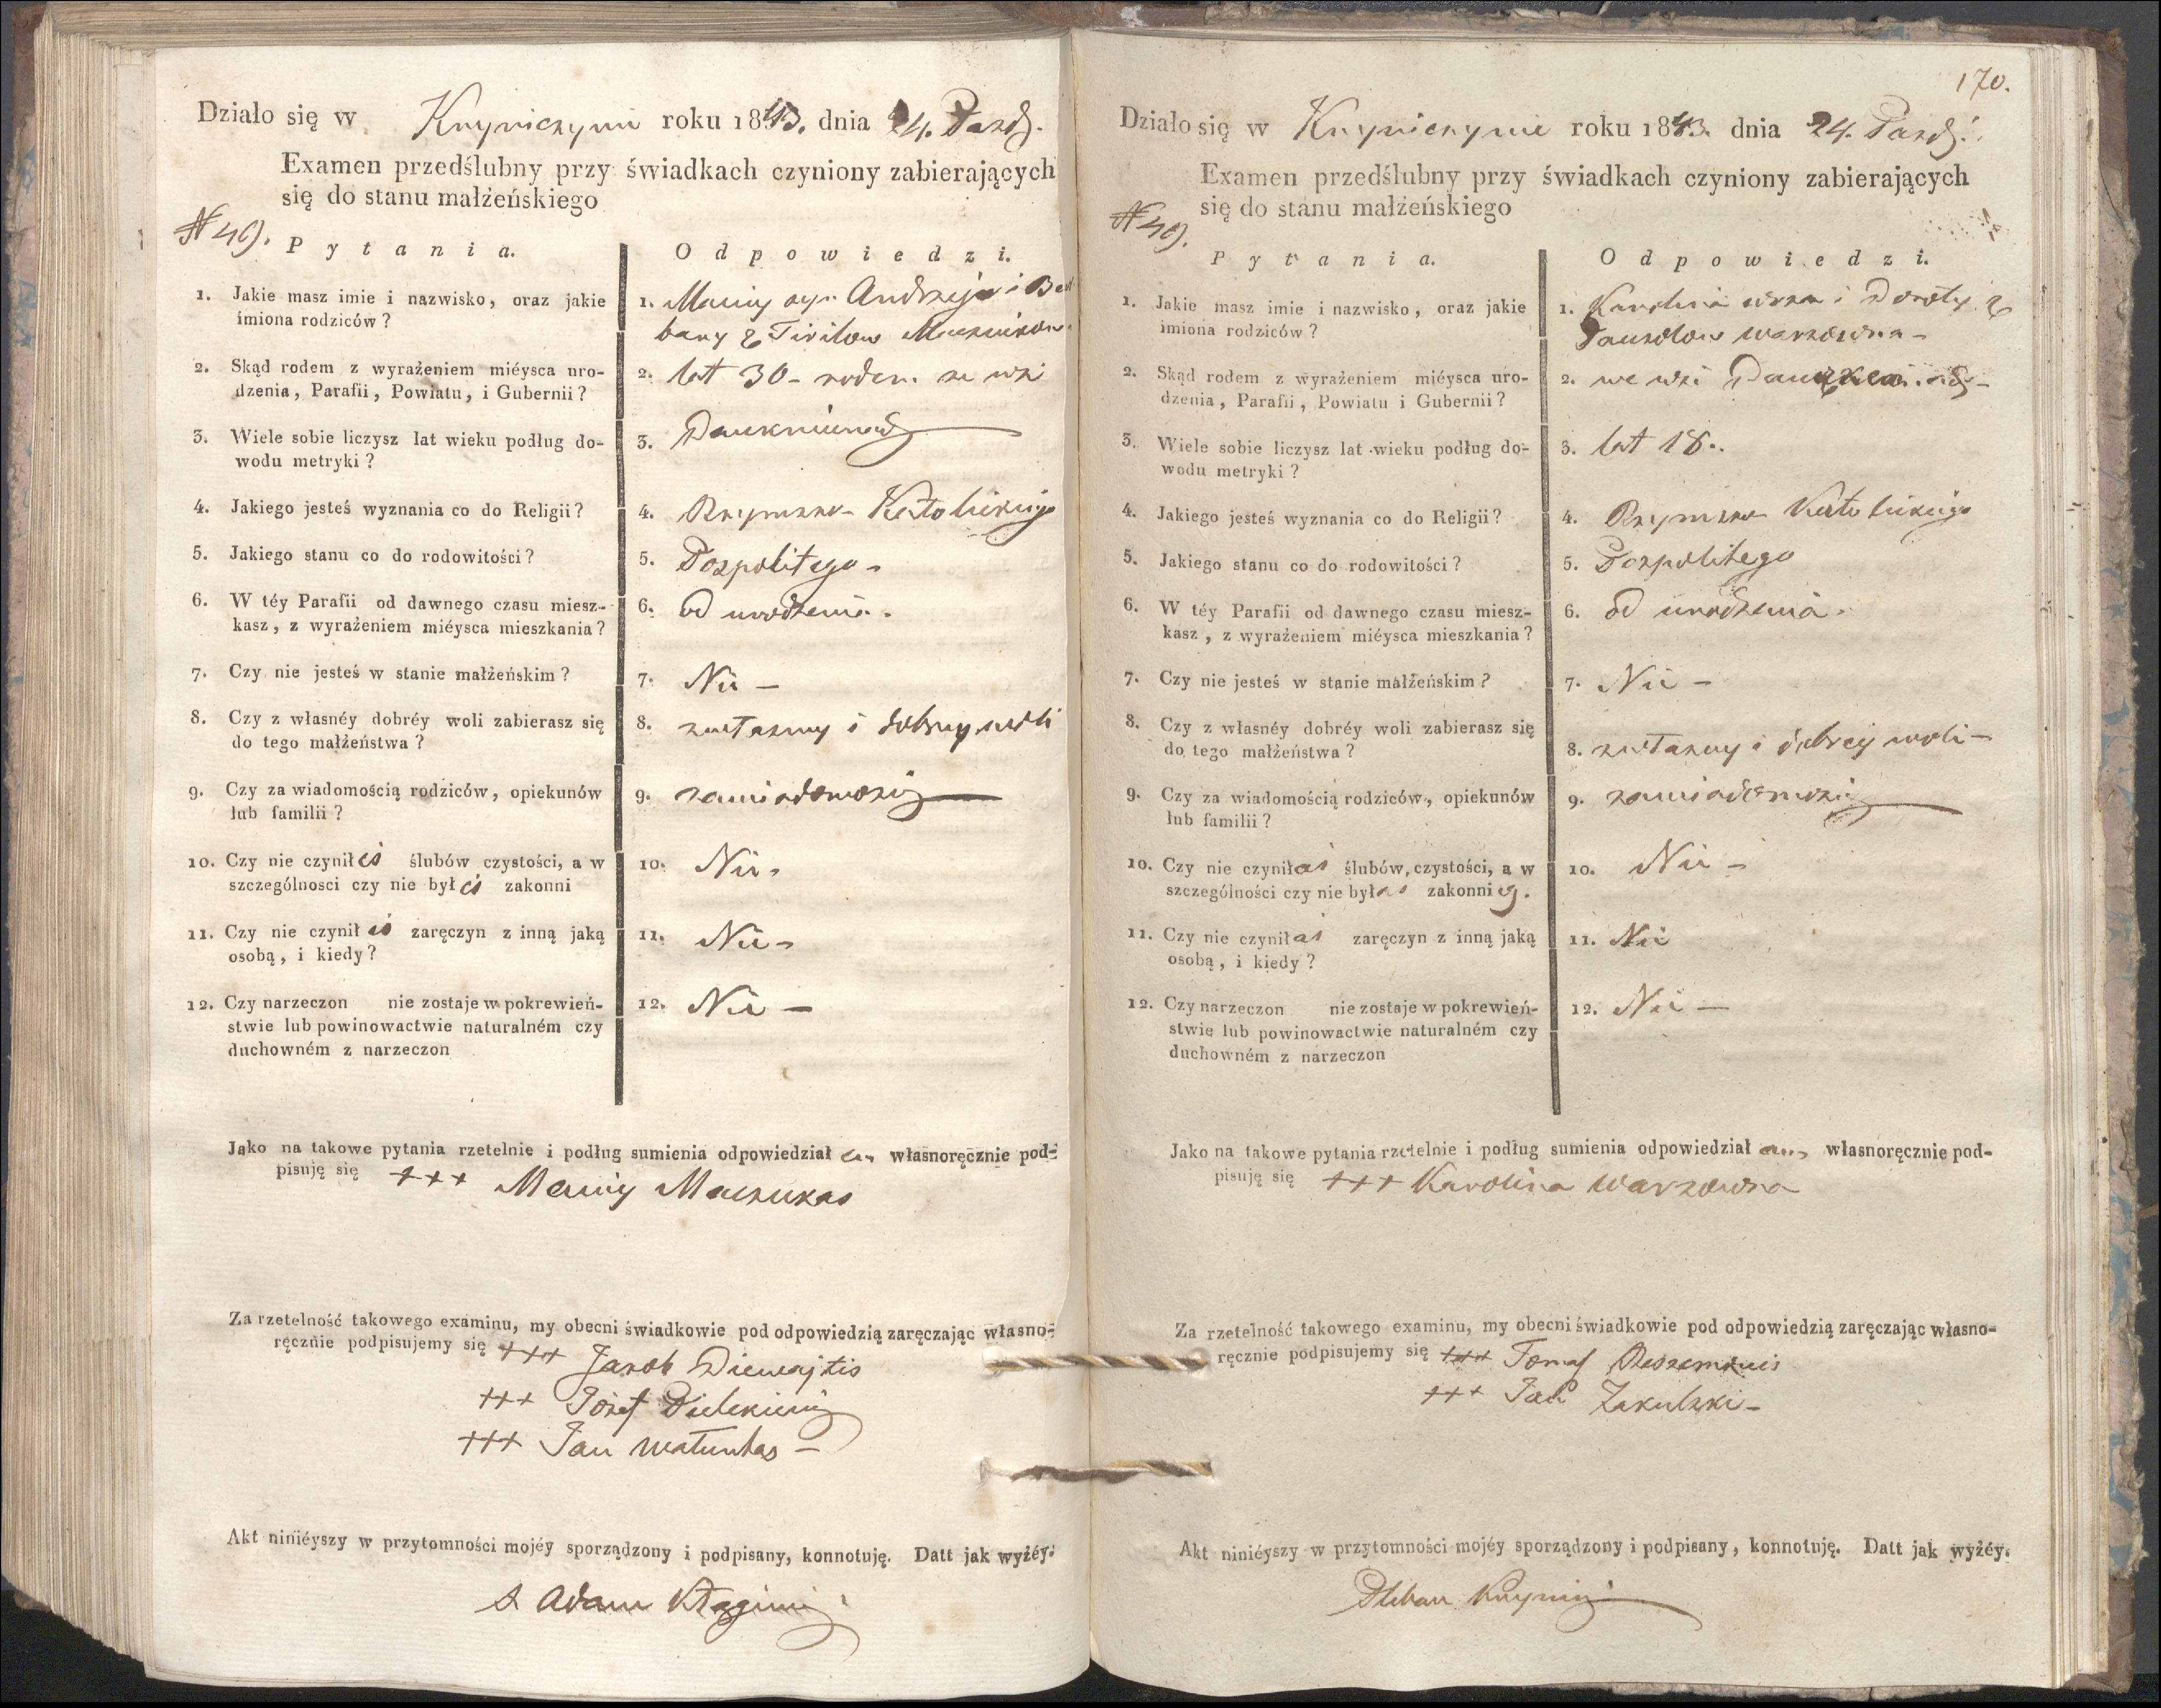 Działo się w Krynicznymi roku 1843. dnia 24. Pazdź.
Examen przedślubny przy świadkach czyniony zabierających
się do stanu małżeńskiego
N 49.
Pytania.
Odpowiedzi.
1. Jakie masz imie i nazwisko, oraz jakie
imiona rodziców?
1. Maciey syn Andrzeja i Bar
bary z
2. Skąd rodem z wyrażeniem miéysca uro-
dzenia, Parafii, Powiatu, i Gubernii?
2. lat 30 - rodem ze wsi
3. Wiele sobie liczysz lat wieku podług do-
wodu metryki?
3.
4. Jakiego jesteś wyznania co do Religii?
4. Rzymsko Katolickiego
5. Jakiego stanu co do rodowitości?
5. Pospolitego -
6. W téy Parafii od dawnego czasu miesz-
kasz, z wyrażeniem miéysca mieszkania?
6. od urodzenia.
7. Czy nie jesteś w stanie małżeńskim?
7. Nie -
8. Czy z własnéy dobréy woli zabierasz się
do tego małżeństwa?
8. z własney i dobrey woli
9. Czy za wiadomością rodziców, opiekunów
lub familii?
9. za wiadomością
10. Czy nie czyniłeś ślubów czystości, a w
szczególnosci czy nie byłeś zakonni
10. Nie.
11. Czy nie czyniłeś zaręczyn z inną jaką
osobą, i kiedy?
11. Nie -
12. Czy narzeczon nie zostaje w pokrewień-
stwie lub powinowactwie naturalném czy
duchowném z narzeczon
12. Nie -
Jako na takowe pytania rzetelnie i podług sumienia odpowiedział em własnoręcznie pod-
pisuję się +++ Maciey Maczukas
Za rzetelność takowego examinu, my obecni świadkowie pod odpowiedzią zaręczając własno-
ręcznie podpisujemy się +++ Jakob Diewajtis
+++ Józef
+++ Jan Matuntas -
Akt niniéyszy w przytomności mojéy sporządzony i podpisany, konnotuję. Datt jak wyżéy.
X Adam
170.
Działo się w Krynicznymie roku 1843. dnia 24. Pazdź.
Examen przedślubny przy świadkach czyniony zabierających
się do stanu małżeńskiego
N 49.
Pytania.
Odpowiedzi.
1. Jakie masz imie i nazwisko, oraz jakie
imiona rodziców?
1. Karolina i Doroty z
Warzowna -
2. Skąd rodem z wyrażeniem miéysca uro-
dzenia, Parafii, Powiatu i Gubernii?
2. we wsi
3. Wiele sobie liczysz lat wieku podług do-
wodu metryki?
3. lat 18.
4. Jakiego jesteś wyznania co do Religii?
4. Rzymsko Katolickiego
5. Jakiego stanu co do rodowitości?
5. Pospolitego
6. W téy Parafii od dawnego czasu miesz-
kasz, z wyrażeniem miéysca mieszkania?
6. od urodzenia.
7. Czy nie jesteś w stanie małżeńskim?
7. Nie -
8. Czy z własnéy dobréy woli zabierasz się
do tego małżeństwa?
8. z własney i dobrey woli -
9. Czy za wiadomością rodziców, opiekunów
lub familii?
9. za wiadomością
10. Czy nie czyniłaś ślubów czystości, a w
szczególności czy nie byłaś zakonnicą.
10. Nie -
11. Czy nie czyniłaś zaręczyn z inną jaką
osobą, i kiedy?
11. Nie
12. Czy narzeczon nie zostaje w pokrewień-
stwie lub powinowactwie naturalném czy
duchowném z narzeczon
12. Nie -
Jako na takowe pytania rzetelnie i podług sumienia odpowiedział am własnoręcznie pod-
pisuję się +++ Karolina Warzowna
Za rzetelność takowego examinu, my obecni świadkowie pod odpowiedzią zaręczając własno-
ręcznie podpisujemy się +++ Tomasz
+++ Jan Zakulski -
Akt niniéyszy w przytomności mojéy sporządzony i podpisany, konnotuję. Datt jak wyżéy.
Pleban